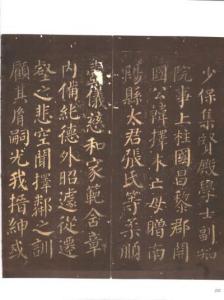 少保集賢殿學士副知
院事上柱國昌黎郡開
國公韓擇木亡母贈南
陽縣太君張氏等柔順
儀慈和家範含章
内備能德外昭遠從遷
壑之悲空聞擇鄰之訓
顧其胤嗣光我搢紳或